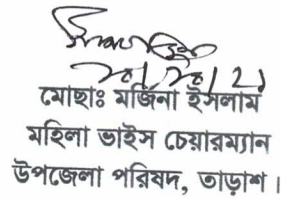 মোছাঃ মর্জিনা ইসলাম
মহিলা ভাইস চেয়ারম্যান
উপজেলা পরিষদ, তাড়াশ।